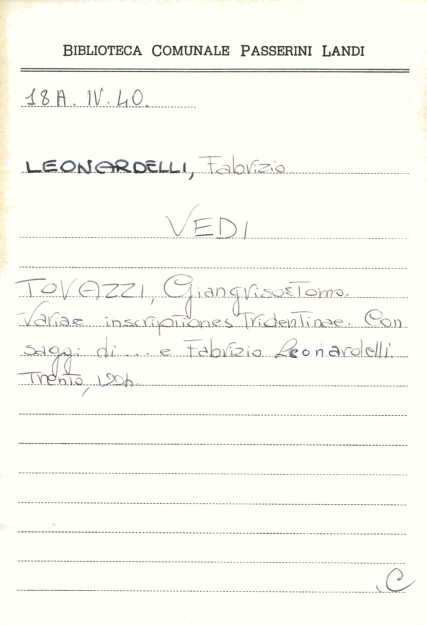 BIBLIOTECA COMUNALE PASSERINI LANDI
18A. IV. 40.
LEONARDELLI, Fabrizio
VEDI
TOVAZZI, Giangrisostomo.
Variae inscriptiones Tridentinae. Con
saggi di ... e Fabrizio Leonardelli.
Trento,
C